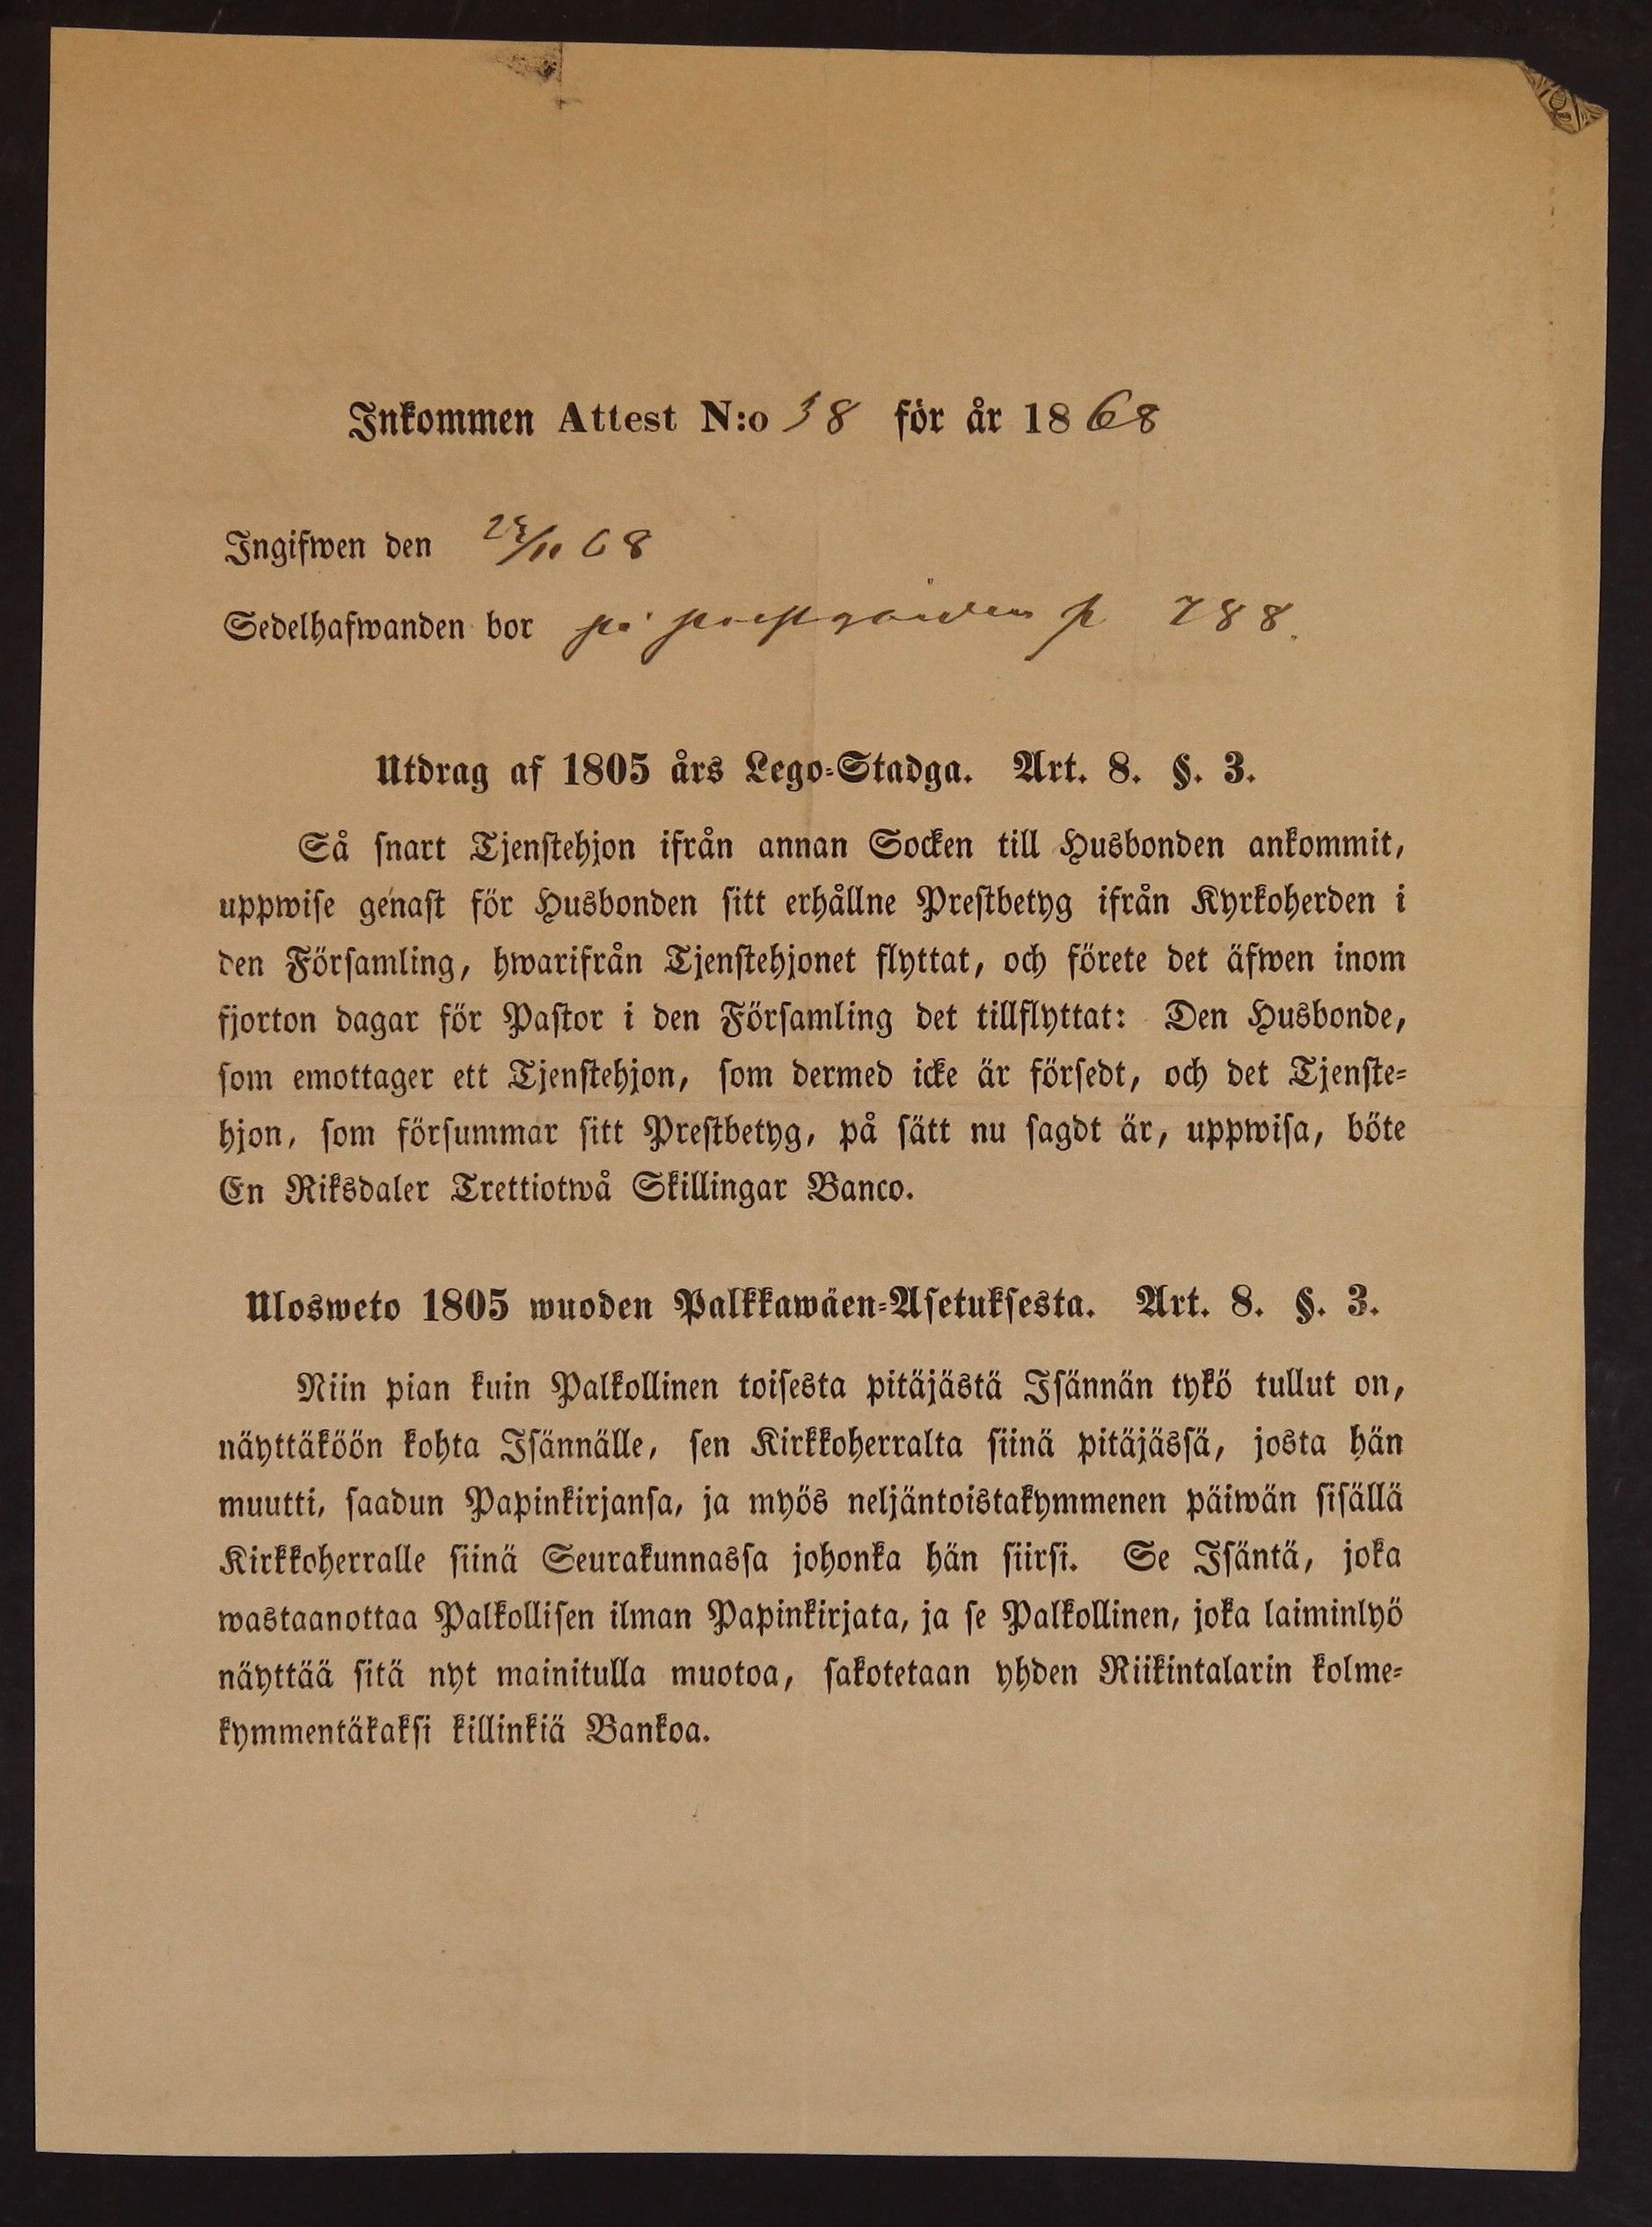 Inkommen Attest N:o 38 för år 1868
Ingifwen den /11 68
Sedelhafwanden bor på prestgården p 788.
Utdrag af 1805 års Lego-Stadga. Art. 8. §. 3.
Så snart Tjenstehjon ifrån annan Socken till Husbonden ankommit,
uppwise genast för Husbonden sitt erhållne Prestbetyg ifrån Kyrkoherden i
den Församling, hwarifrån Tjenstehjonet flyttat, och förete det äfwen inom
fjorton dagar för Pastor i den Församling det tillflyttat: Den Husbonde,
som emottager ett Tjenstehjon, som dermed icke är försedt, och det Tjenste-
hjon, som försummar sitt Prestbetyg, på sätt nu sagdt är, uppwisa, böte
En Riksdaler Trettiotwå Skillingar Banco.
Ulosweto 1805 wuoden Palkkawäen-Asetuksesta. Art. 8. §. 3.
Niin pian kuin Palkollinen toisesta pitäjästä Isännän tykö tullut on,
näyttäköön kohta Isännälle, sen Kirkkoherralta siinä pitäjässä, josta hän
muutti, saadun Papinkirjansa, ja myös neljäntoistakymmenen päiwän sisällä
Kirkkoherralle siinä Seurakunnassa johonka hän siirsi. Se Isäntä, joka
wastaanottaa Palkollisen ilman Papinkirjata, ja se Palkollinen, joka laiminlyö
näyttää sitä nyt mainitulla muotoa, sakotetaan yhden Riikintalarin kolme-
kymmentäkaksi killinkiä Bankoa.